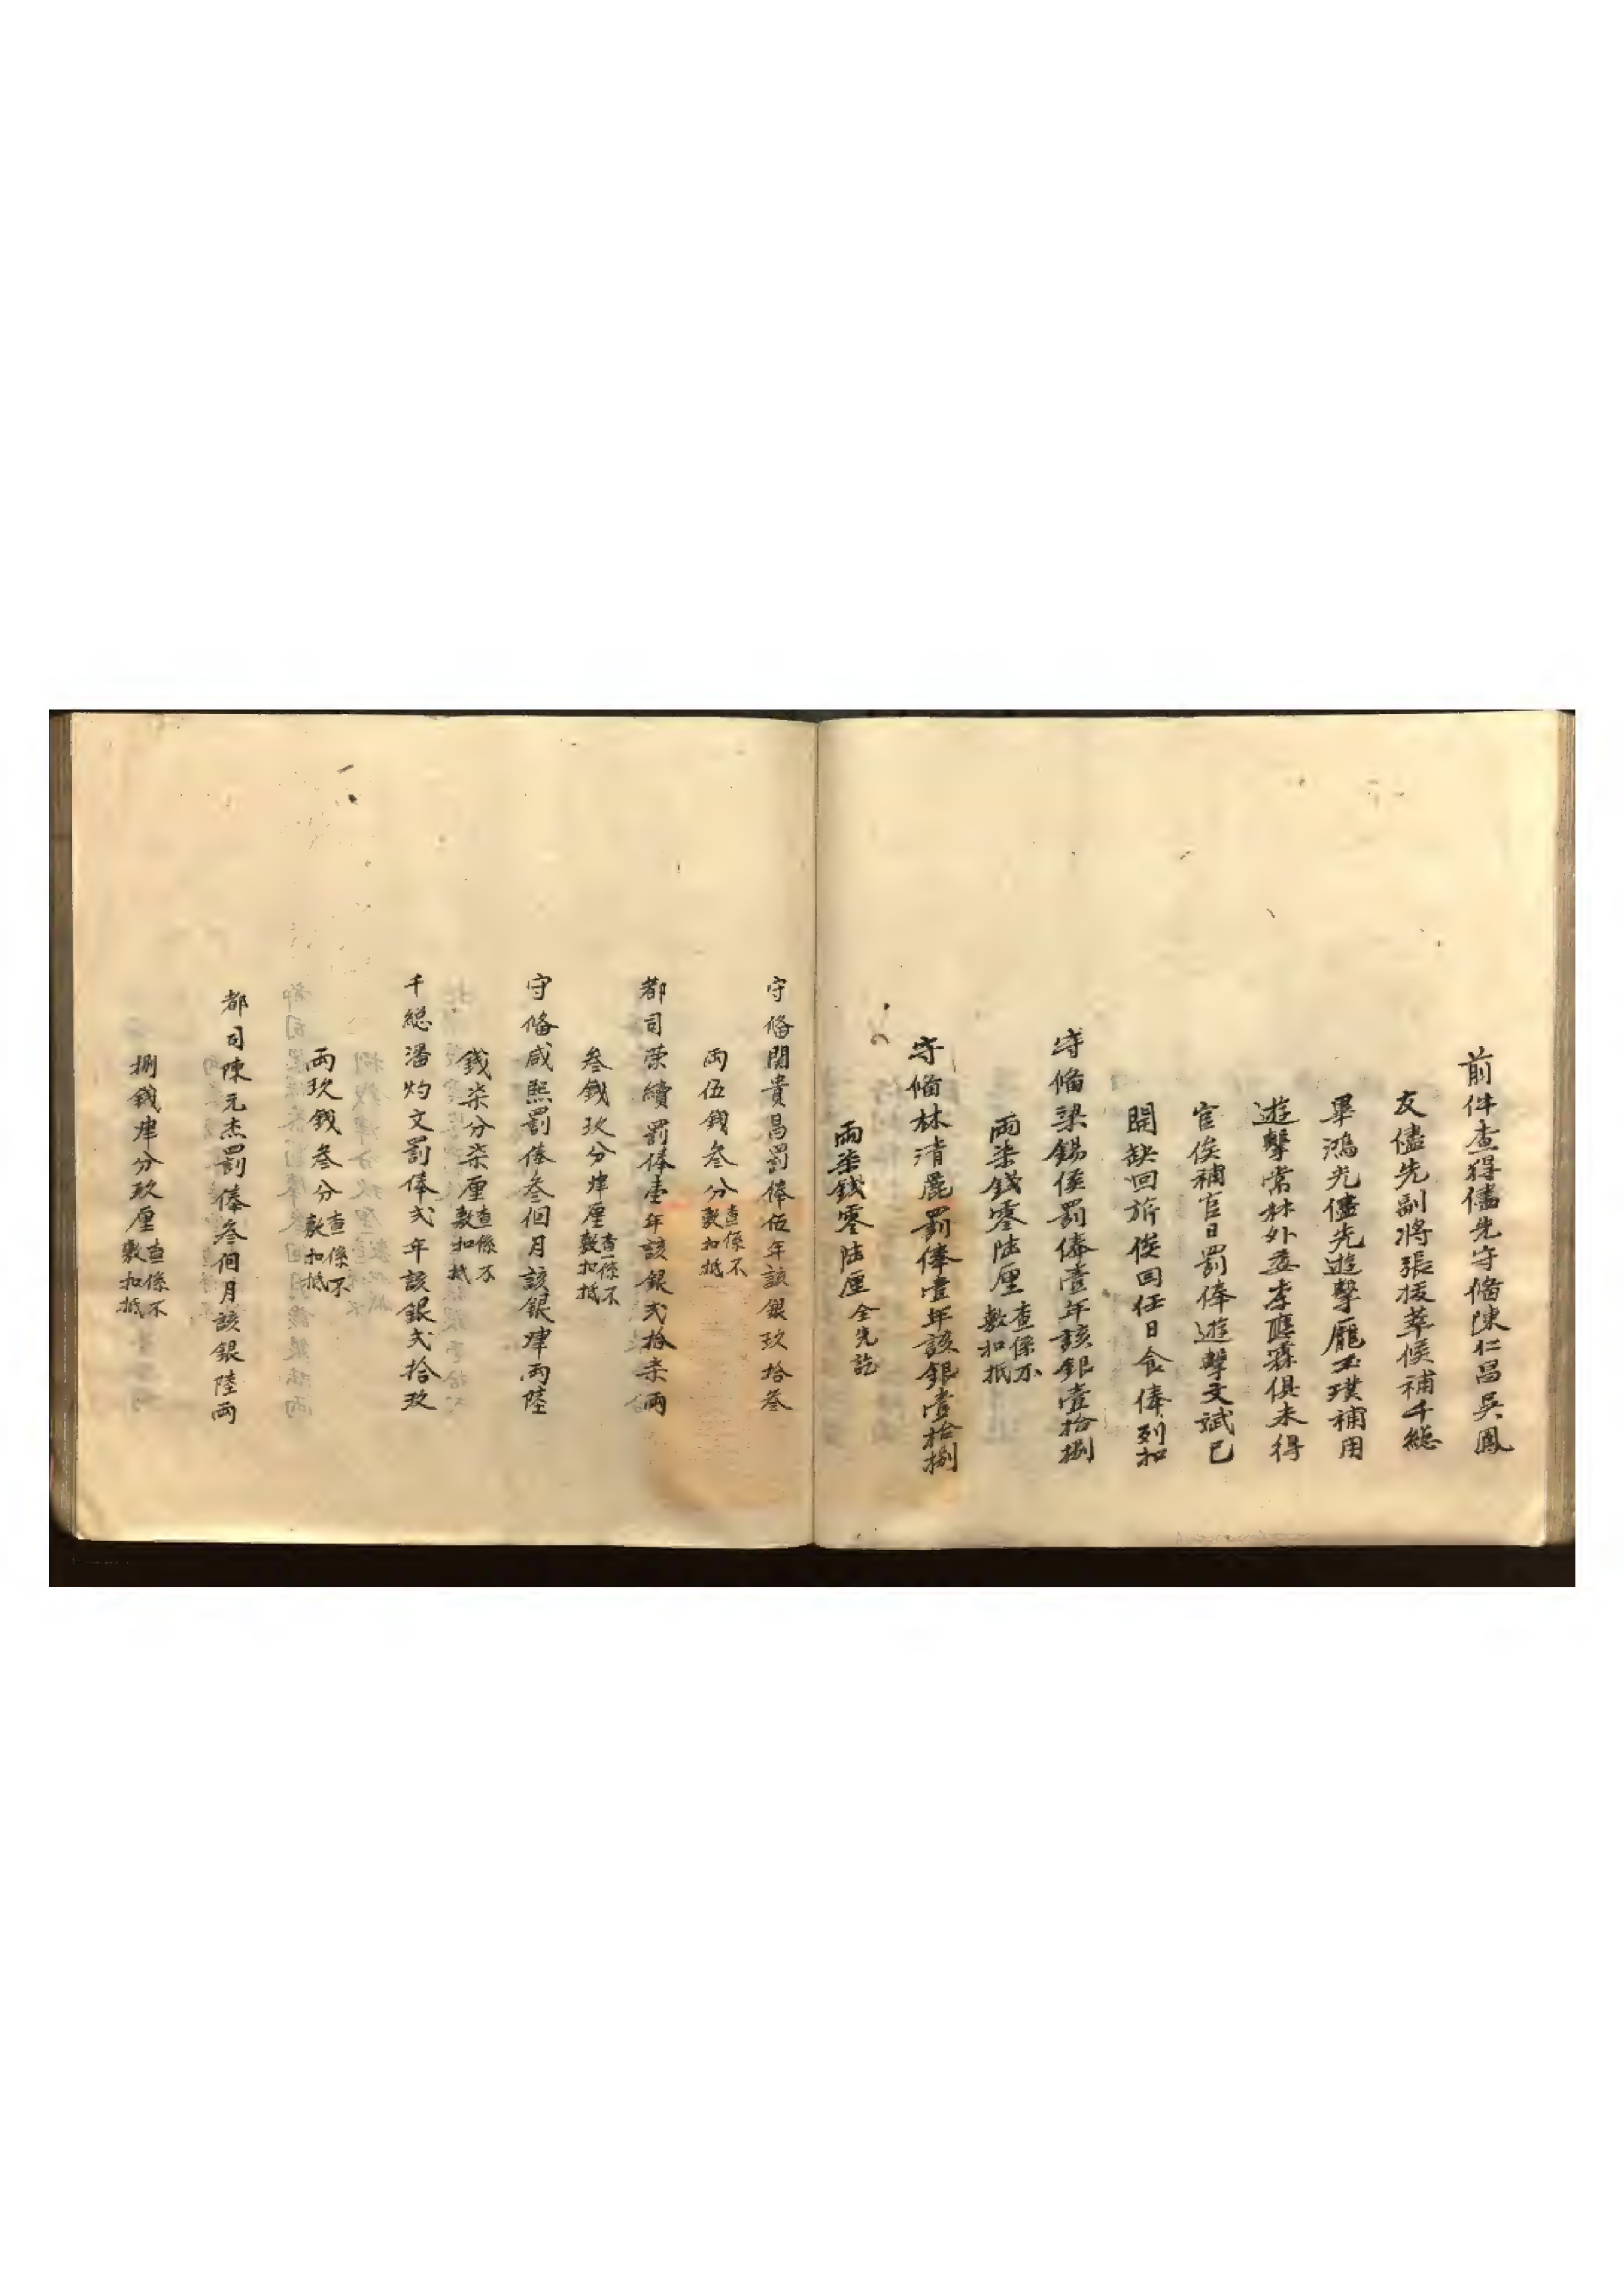 前件查得儘先守俻陳仁昌吳鳳
友儘先副將張拔萃候補千総
畢鴻光儘先遊擊龐玉璞補用
遊擊常林外委李應霖俱未得
官俟補官日罰俸遊擊文斌已
開缺回旂俟回任日食俸列扣
守俻梁錫僅罰俸壹年該銀壹拾捌
両柒錢零陸厘查係不
敷扣抵
守俻林清麗罰俸壹年該銀壹拾捌
両柒錢零陸厘全完訖
守俻関貴昌罰俸伍年該銀玖拾叁
両伍錢叁分查係不
敷扣抵
都司荣續罰俸壹年該銀弍拾柒両
叁錢玖分肆厘查係不
敷扣抵
守俻咸熙罰俸叁個月該銀肆両陸
錢柒分柒厘查係不
敷扣抵
千総潘灼文罰俸弍年該銀弍拾玖
両玖錢叁分查係不
敷扣抵
都司陳元杰罰俸叁個月該銀陸両
捌錢肆分玖厘查係不
敷扣抵